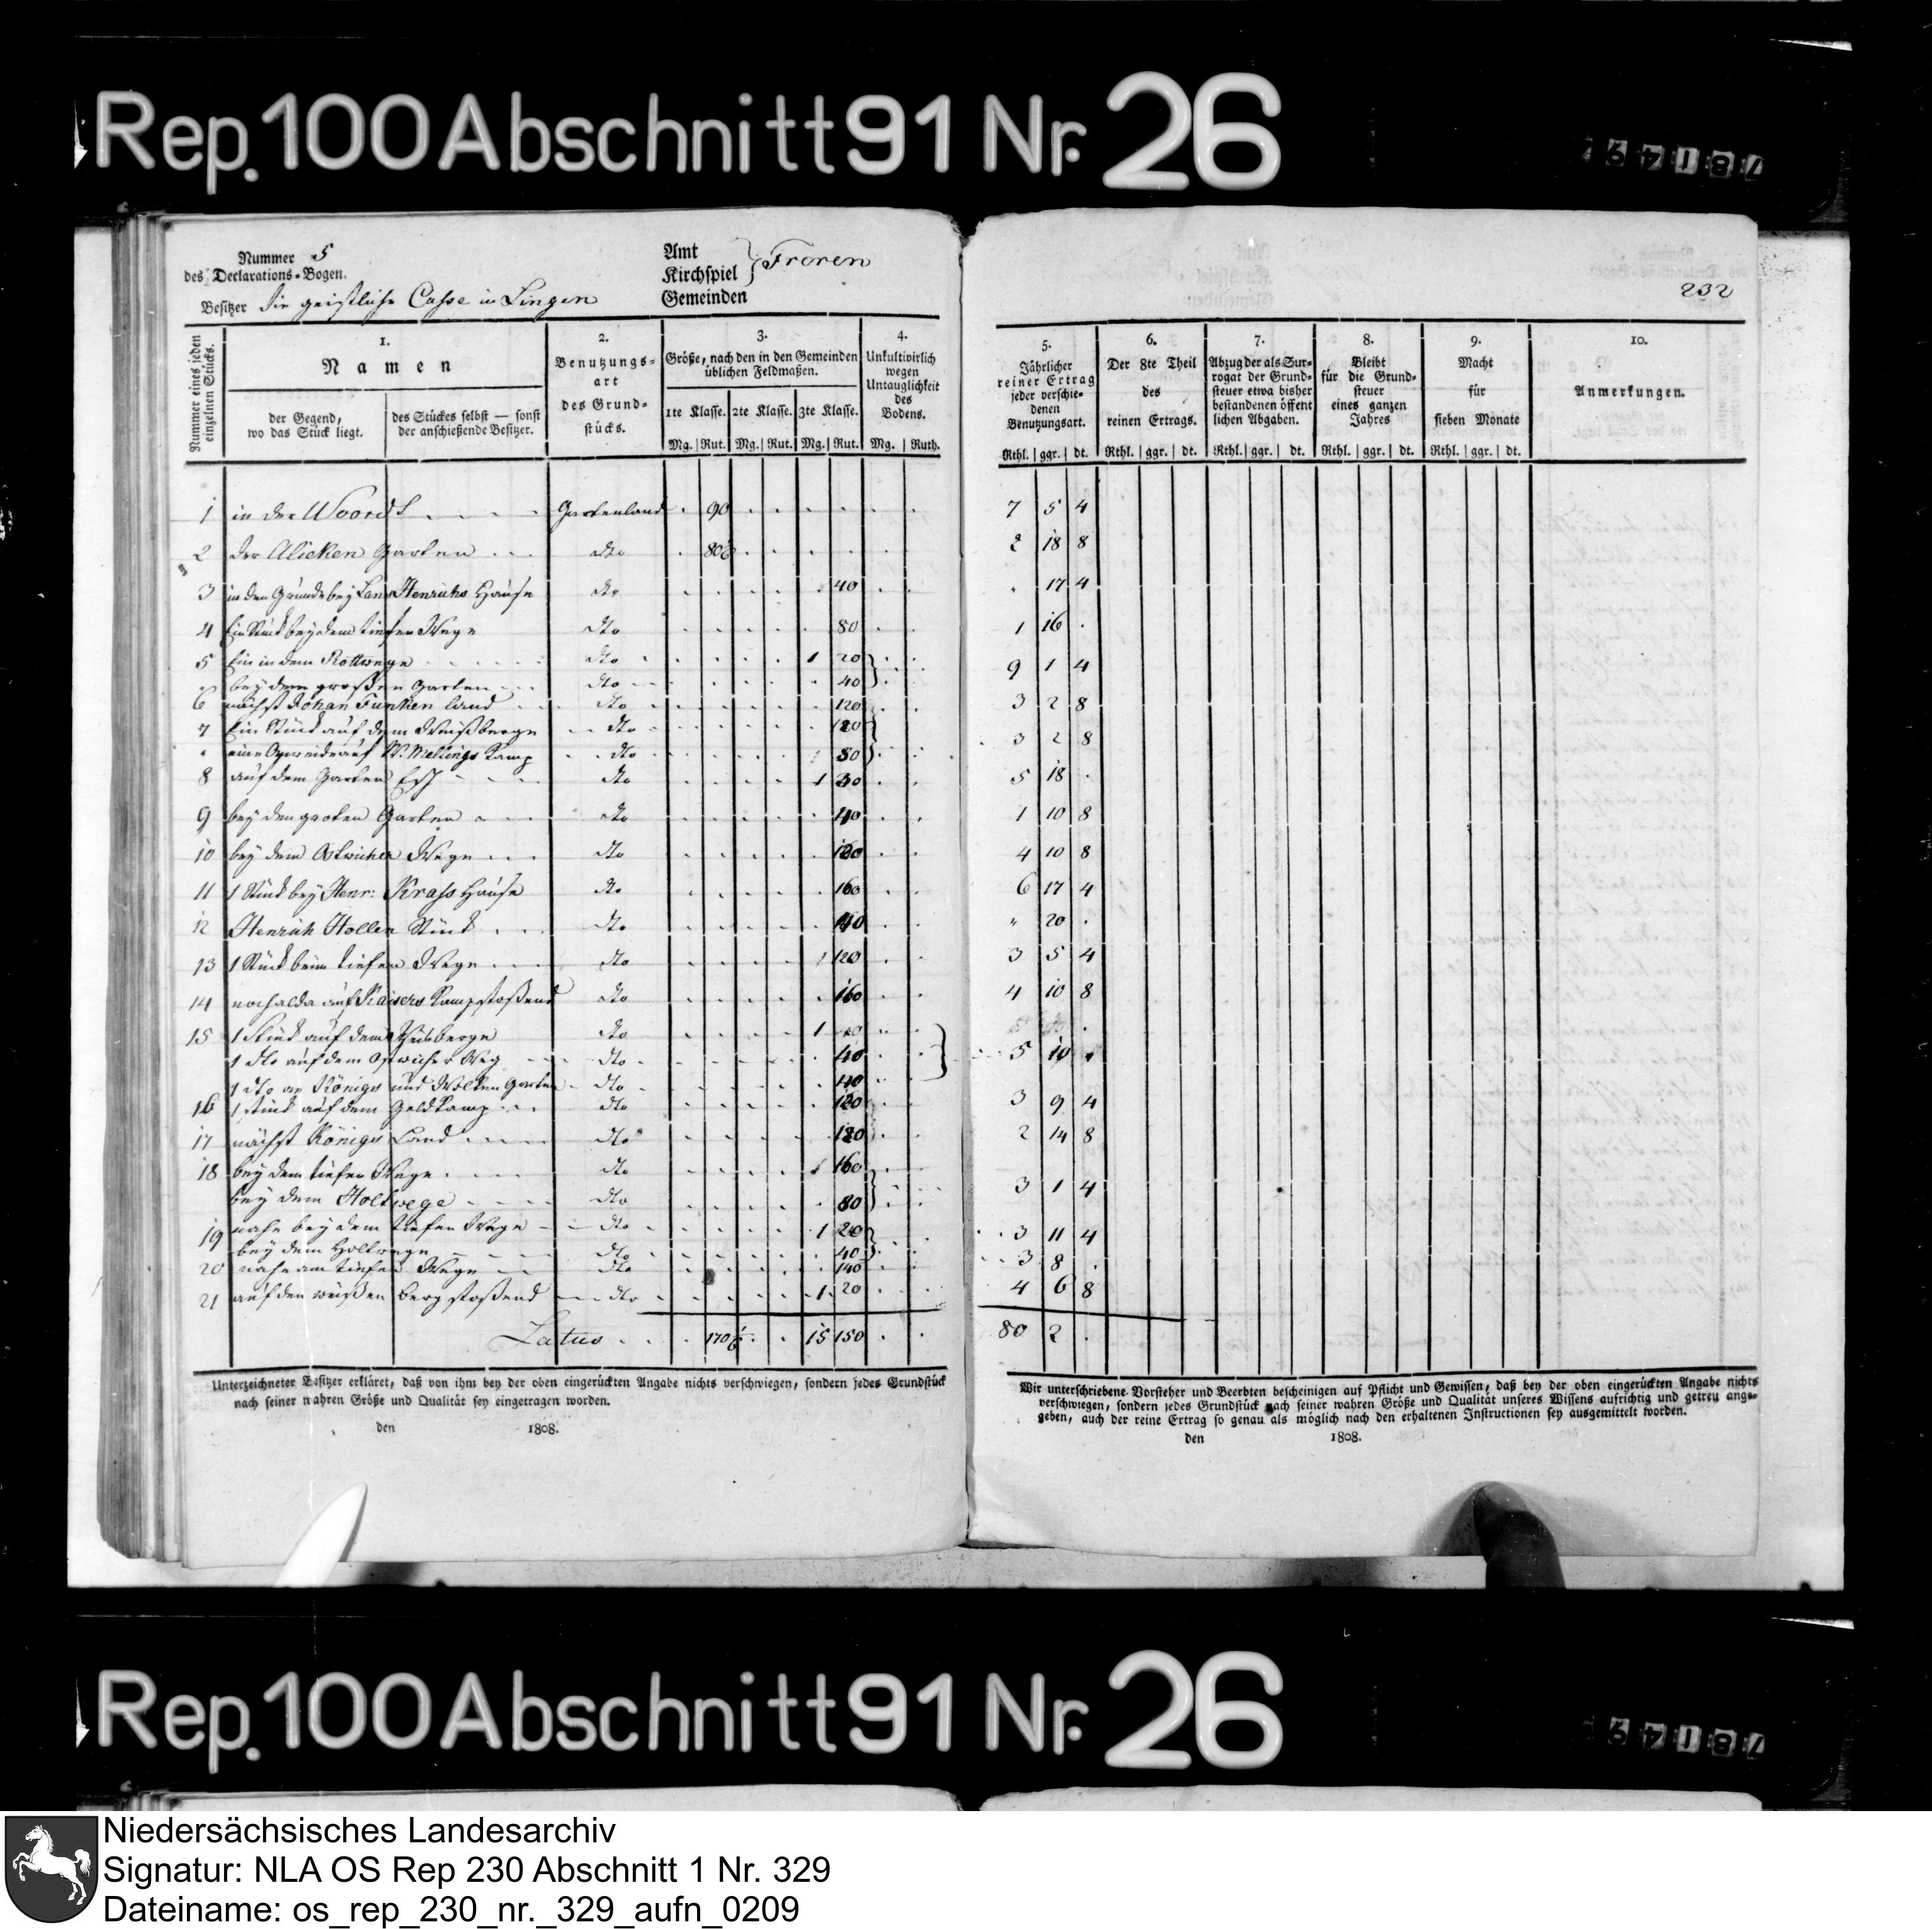 Rep. 100 Abschnitt 91 Nr. 26
78149
Nummer 5
des Declarations-Bogen.
Besitzer die geistliche Casse in Lingen
Amt
Kirchspiel } Freren
Gemeinden
232
Nummer eines jeden einzelnen Stücks.
1.
Namen
der Gegend, wo das Stück liegt.
des Stückes selbst — sonst der anschießende Besitzer.
2.
Benutzungs-art des Grund-stücks.
3.
Größe, nach den in den Gemeinden üblichen Feldmaßen.
1te Klasse. 2te Klasse. 3te Klasse.
Mg. Rut. Mg. Rut. Mg. Rut.
4.
Unkultivirlich wegen Untauglichkeit des Bodens.
Mg. Ruth.
5.
Jährlicher reiner Ertrag jeder verschie-denen Benutzungsart.
Rthl. ggr. dt.
6.
Der 8te Theil des reinen Ertrags.
Rthl. ggr. dt.
7.
Abzug der als Sur-rogat der Grund-steuer etwa bisher bestandenen öffent lichen Abgaben.
Rthl. ggr. dt.
8.
Bleibt für die Grund-steuer eines ganzen Jahres
Rthl. ggr. dt.
9.
Macht für sieben Monate
Rthl. ggr. dt.
10.
Anmerkungen.
1 in der Woordt Gartenland 90 7 5 4
2 der Alicken Garten dto 80 2 18 8
3 in den Grunde bey Henrichs Hause dto 40 " 17 4
4 Ein Stück bey dem tiefen Wege dto 80 1 16 .
5 Ein in dem Rottwege dto 1 20 9 1 4
bey dem großen Garten dto 40
6 nächst Johan Funken land dto 120 3 2 8
7 Ein Stück auf dem Weißberge dto 120 3 2 8
auf W. Mellings Kamp dto 80
8 auf dem Garten Esch dto 1 30 5 18 .
9 bey den groten Garten dto 40 1 10 8
10 bey dem Ostwicher Wege dto 4 10 8
11 1 Stück bey Henr: Krass Hause dto 160 6 17 4
12 Henrich Hollen Stück dto 40 " 20 .
13 1 Stück beim tiefen Wege dto 120 3 5 4
14 noch alda auf Kaisers Kamp stoßend dto 160 4 10 8
15 1 Stück auf dem dto 1 5 10
1 dto auf dem Ostwicher Weg dto 40
1 dto an Königs und Garten dto 40
16 1 Stück auf dem Geldkamp dto 3 9 4
17 nächst Königs Land dto 120 2 14 8
18 bey dem tiefen Wege dto 160 3 1 4
bey dem Holtwege dto 80
19 nahe bey dem tiefen Wege dto 1 20 3 11 4
bey dem Holtwege dto 40
20 nahe am tiefen Wege dto 140 3 8 .
21 auf den weißen berg stoßend dto 1 20 4 6 8
Latus 170 15 150 80 2 .
Unterzeichneter Besitzer erkläret, daß von ihm bey der oben eingerückten Angabe nichts verschwiegen, sondern jedes Grundstück
nach seiner wahren Größe und Qualität sey eingetragen worden.
den 1808.
Wir unterschriebene Vorsteher und Beerbten bescheinigen auf Pflicht und Gewissen, daß bey der oben eingerückten Angabe nichts
verschwiegen, sondern jedes Grundstück nach seiner wahren Größe und Qualität unseres Wissens aufrichtig und getreu ange-
geben, auch der reine Ertrag so genau als möglich nach den erhaltenen Instructionen sey ausgemittelt worden.
den 1808.
Rep. 100 Abschnitt 91 Nr. 26
78149
Niedersächsisches Landesarchiv
Signatur: NLA OS Rep 230 Abschnitt 1 Nr. 329
Dateiname: os_rep_230_nr._329_aufn_0209